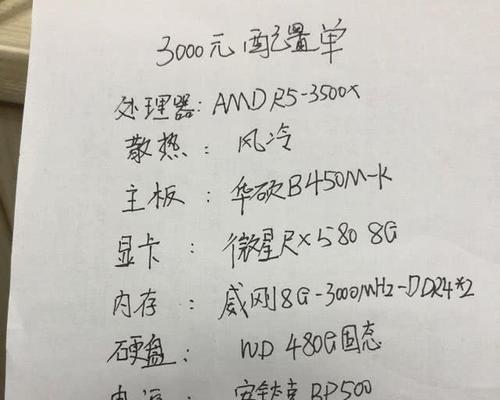 3000元配置单
处理器:AMD R5-3500X
散热:风冷
主板:华硕B450M-K
显卡:微星RX580 8G
内存:威刚8G-3000MHz-DDR4*2
硬盘:WD 480G固态
电源:安钛克BP500